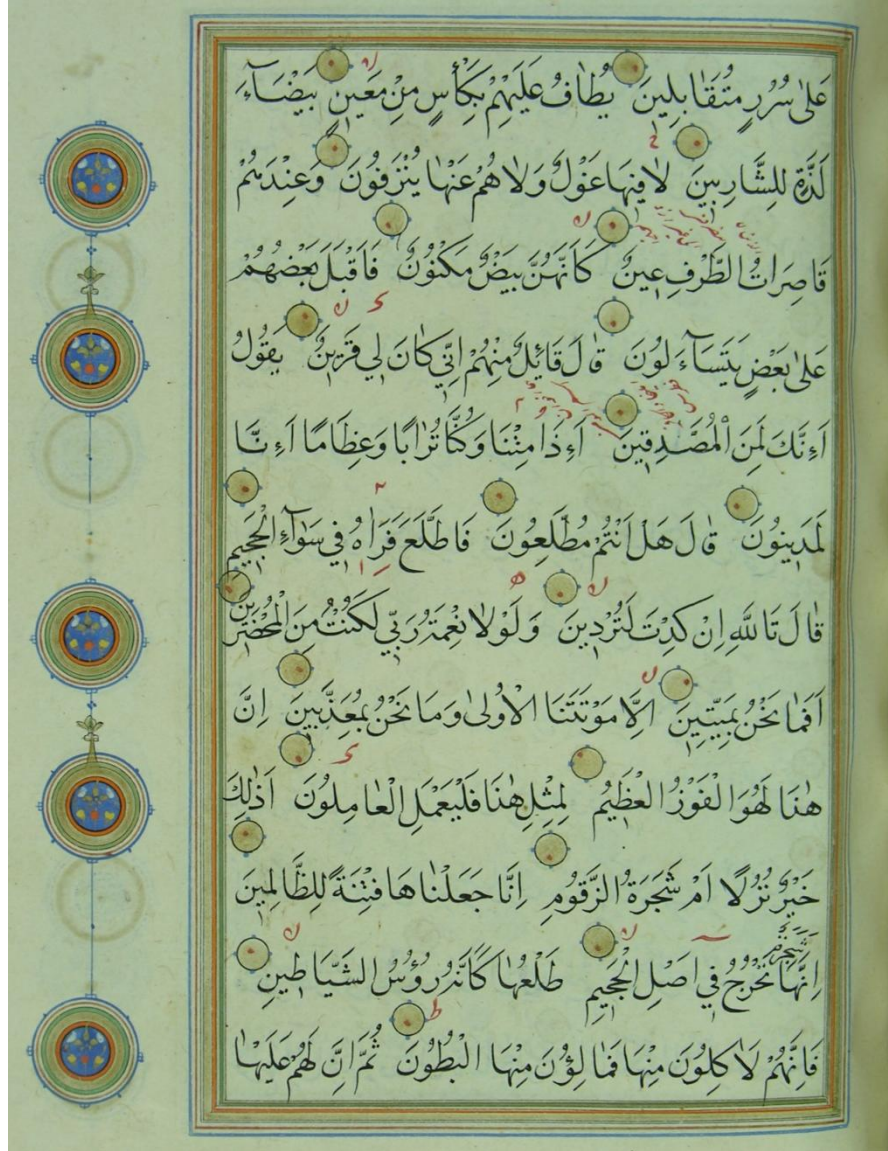 عَلٰى سُرُرٍ مُتَقَابِلِينَ يُطَافُ عَلَيْهِمْ بِكَأْسٍ مِنْ مَعِينٍ بَيْضَآءَ
لَذَّةٍ لِلشَّارِبِينَ لَا فِيهَا غَوْلٌ وَلَا هُمْ عَنْهَا يُنْزَفُونَ وَعِنْدَهُمْ
قَاصِرَاتُ الطَّرْفِ عِينٌ كَاَنَّهُنَّ بَيْضٌ مَكْنُونٌ فَاَقْبَلَ بَعْضُهُمْ
عَلٰى بَعْضٍ يَتَسَآءَلُونَ قَالَ قَائِلٌ مِنْهُمْ اِنّ۪ي كَانَ ل۪ي قَرِينٌ يَقُولُ
اَءِنَّكَ لَمِنَ الْمُصَدِّقِينَ اَءِذَا مِتْنَا وَكُنَّا تُرَابًا وَعِظَامًا اَءِنَّا
لَمَدِينُونَ قَالَ هَلْ اَنْتُمْ مُطَّلِعُونَ فَاطَّلَعَ فَرَاٰهُ فِي سَوَآءِ الْجَحِيمِ
قَالَ تَاللّٰهِ اِنْ كِدْتَ لَتُرْدِينِ وَلَوْلَا نِعْمَةُ رَبِّي لَكُنْتُ مِنَ الْمُحْضَرِينَ
اَفَمَا نَحْنُ بِمَيِّتِينَ اِلَّا مَوْتَتَنَا الْاُولٰى وَمَا نَحْنُ بِمُعَذَّبِينَ اِنَّ
هٰذَا لَهُوَ الْفَوْزُ الْعَظِيمُ لِمِثْلِ هٰذَا فَلْيَعْمَلِ الْعَامِلُونَ اَذٰلِكَ
خَيْرٌ نُزُلًا اَمْ شَجَرَةُ الزَّقُّومِ اِنَّا جَعَلْنَاهَا فِتْنَةً لِلظَّالِمِينَ
اِنَّهَا شَجَرَةٌ تَخْرُجُ فِي اَصْلِ الْجَحِيمِ طَلْعُهَا كَاَنَّهُ رُؤُسُ الشَّيَاطِينِ
فَاِنَّهُمْ لَاٰكِلُونَ مِنْهَا فَمَالِؤُنَ مِنْهَا الْبُطُونَ ثُمَّ اِنَّ لَهُمْ عَلَيْهَا